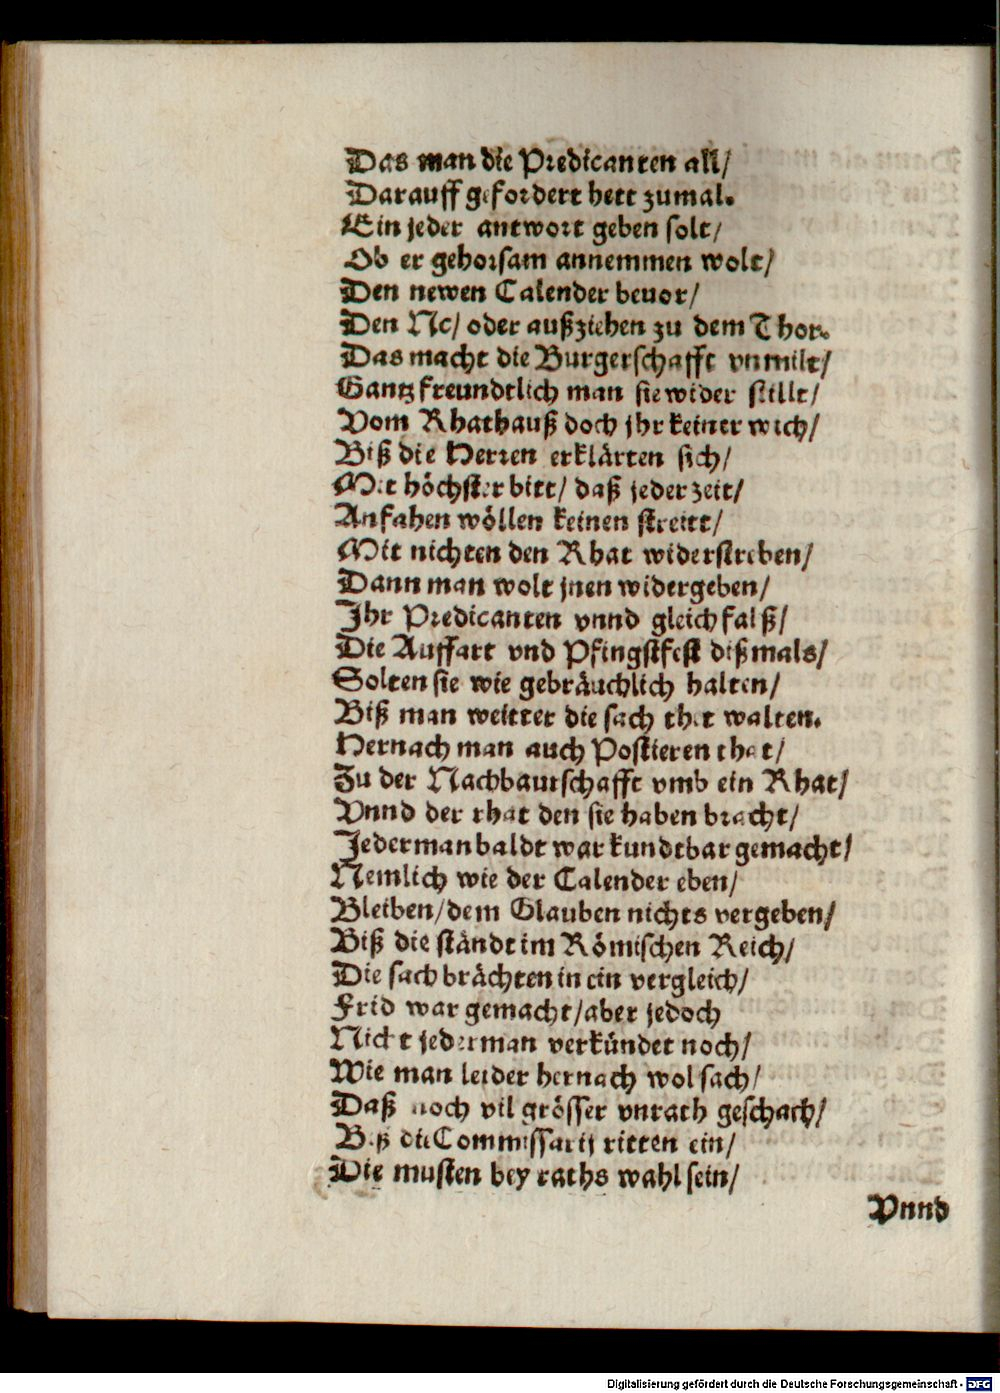 Das man die Predicanten all/
Darauff gefordert hett zumal.
Ein jeder antwort geben solt/
Ob er gehorsam annemmen wolt/
Den newen Calender beuor/
Den Nc/ oder außziehen zu dem Thor.
Das macht die Burgerschafft vnmilt/
Gantz freundtlich man sie wider stillt/
Vom Rhathauß doch jhr keiner wich/
Biß die Herren erklärten sich/
Mit höchster bitt/ daß jeder zeit/
Anfahen wöllen keinen streitt/
Mit nichten den Rhat widerstreben/
Dann man wolt jnen widergeben/
Ihr Predicanten vnnd gleichfalß/
Die Auffart vnd Pfingstfest dißmals/
Solten sie wie gebräuchlich halten/
Biß man weitter die sach thet walten.
Hernach man auch Postieren that/
Zu der Nachbaurschafft vmb ein Rhat/
Vnnd der rhat den sie haben bracht/
Jederman baldt war kundtbar gemacht/
Nemlich wie der Calender eben/
Bleiben/ dem Glauben nichts vergeben/
Biß die ständt im Römischen Reich/
Die sach brächten in ein vergleich/
Frid war gemacht/ aber jedoch
Nicht jederman verkündet noch/
Wie man leider hernach wol sach/
Daß noch vil grösser vnrath geschach/
Biß die Commissarij ritten ein/
Die musten bey raths wahl sein/
Vnnd
Digitalisierung gefördert durch die Deutsche Forschungsgemeinschaft - DFG